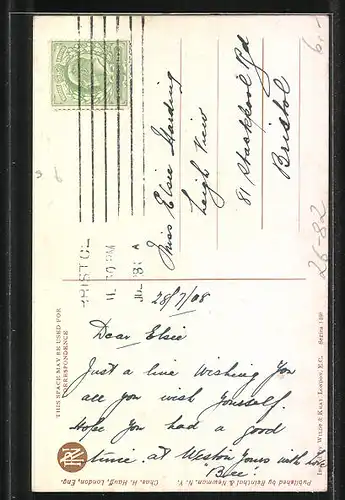 6.-
BRISTOL
11.30 PM
JUL 28
Miss Elsie Harding
Leigh View
81 Stackpool Rd
Bristol
26-82
28/7/08
Dear Elsie
Just a line Wishing You
all you wish Yourself.
Hope You had a good
time at Weston Yours with love
THIS SPACE MAY BE USED FOR
CORRESPONDENCE
RN
Chas. H. Hauff, London, Eng.
Published by Reinthal & Newman, N. Y.
WILDT & KRAY, LONDON, E.C.